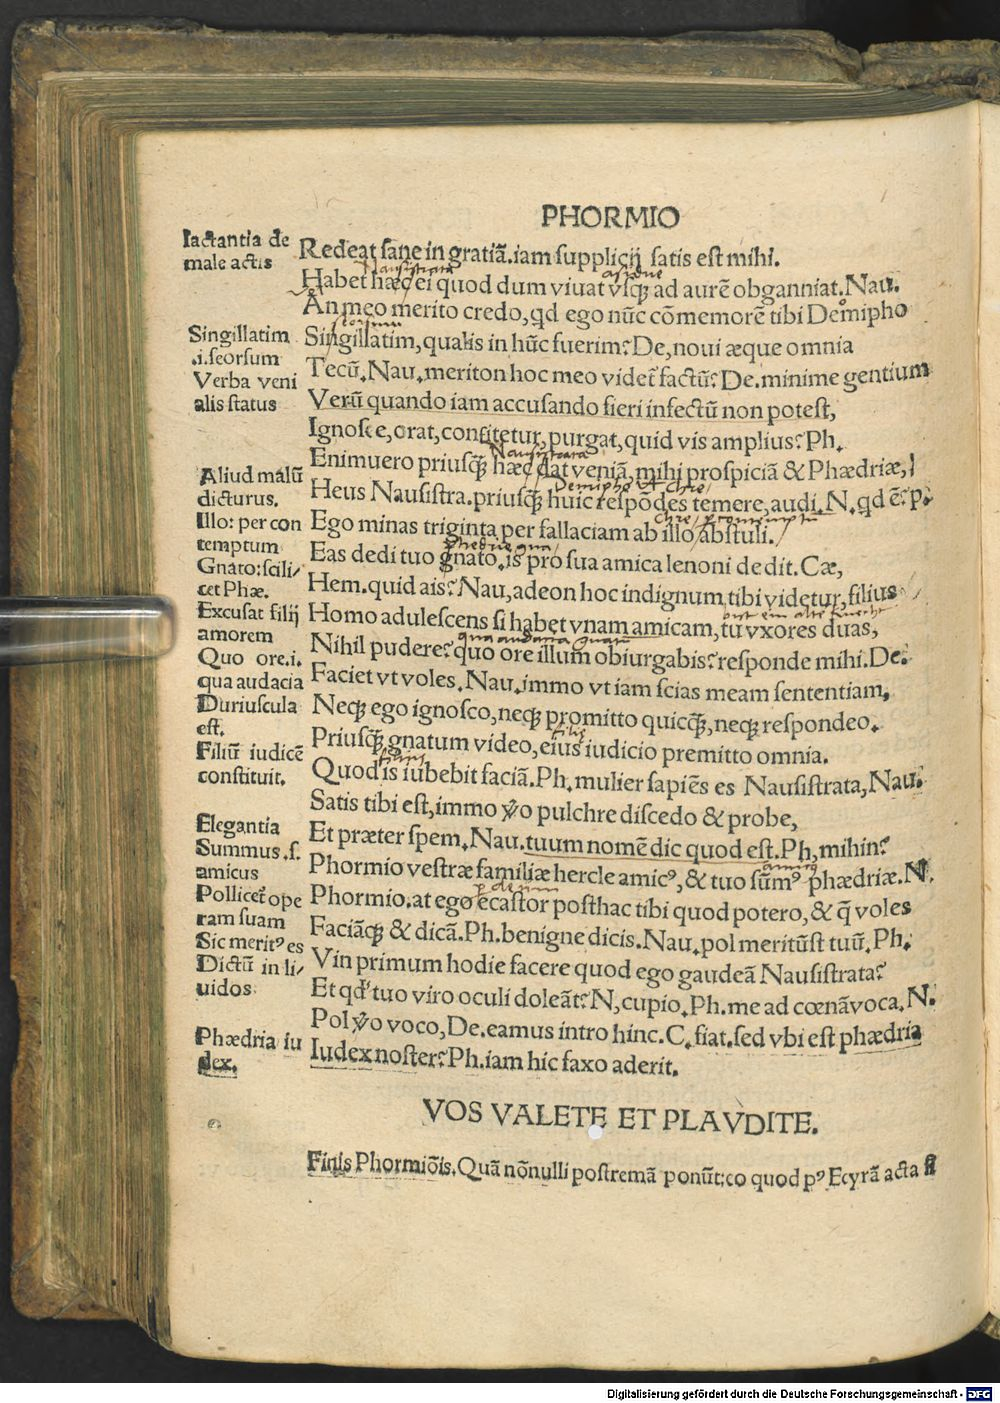 PHORMIO
Iactantia de
male actis
Singillatim
.i.seorsum
Verba veni
alis status
Aliud malũ
dicturus.
Illo: per con
temptum
Gnato: scili/
cet Phæ.
Excusat filij
amorem
Quo ore.i.
qua audacia
Duriuscula
est.
Filiũ iudicẽ
constituit.
Elegantia
Summus .s.
amicus
Pollicet᷑ ope
ram suam
Sic merit⁹ es
Dictũ in li/
uidos
Phædria iu
dex.
Redeat sane in gratiã. iam supplicij satis est mihi.
Nausistrata assidue
Habet hæc ei quod dum viuat vsq̃ ad aurẽ obganniat. Nau.
An meo merito credo, qd ego nũc cõmemorẽ tibi Demipho
seorsum
Singillatim, qualis in hũc fuerim? De, noui æque omnia
Tecũ. Nau. meriton hoc meo videt᷑ factũ? De. minime gentium
Verũ quando iam accusando fieri infectũ non potest,
Ignosce, orat, confitetur, purgat, quid vis amplius? Ph.
Nausistrata
Enimuero priusq̃ hæc dat veniã, mihi prospiciã & Phædriæ,
Demipho
Heus Nausistra. priusq̃ huic respõdes temere, audi. N. qd ẽ? p.
Ego minas triginta per fallaciam ab illo abstuli.
Eas dedi tuo gnato. is pro sua amica lenoni dedit. Cæ,
Hem. quid ais? Nau, adeon hoc indignum tibi videtur, filius
Homo adulescens si habet vnam amicam, tu vxores duas,
qua audacia
Nihil pudere? quo ore illum obiurgabis? responde mihi. De.
Faciet vt voles. Nau. immo vt iam scias meam sententiam,
Neq̃ ego ignosco, neq̃ promitto quicq̃, neq̃ respondeo.
filij
Priusq̃ gnatum video, eius iudicio premitto omnia.
filius
Quod is iubebit faciã. Ph. mulier sapiẽs es Nausistrata, Nau.
Satis tibi est, immo ṽo pulchre discedo & probe,
Et præter spem. Nau. tuum nomẽ dic quod est. Ph, mihin?
amicus
Phormio vestræ familiæ hercle amic⁹, & tuo sũm⁹ phædriæ. N.
Phormio. at ego ecastor posthac tibi quod potero, & q̃ voles
Faciãq̃ & dicã. Ph. benigne dicis. Nau. pol meritũst tuũ. Ph.
Vin primum hodie facere quod ego gaudeã Nausistrata?
Et qd tuo viro oculi doleãt? N, cupio. Ph. me ad cœnã voca. N.
Pol ṽo voco, De. eamus intro hinc. C. fiat. sed vbi est phædria
Iudex noster? Ph. iam hic faxo aderit.
VOS VALETE ET PLAVDITE.
Finis Phormiõis. Quã nõnulli postremã ponũt: eo quod p⁹ Ecyrã acta sit
Digitalisierung gefördert durch die Deutsche Forschungsgemeinschaft - DFG